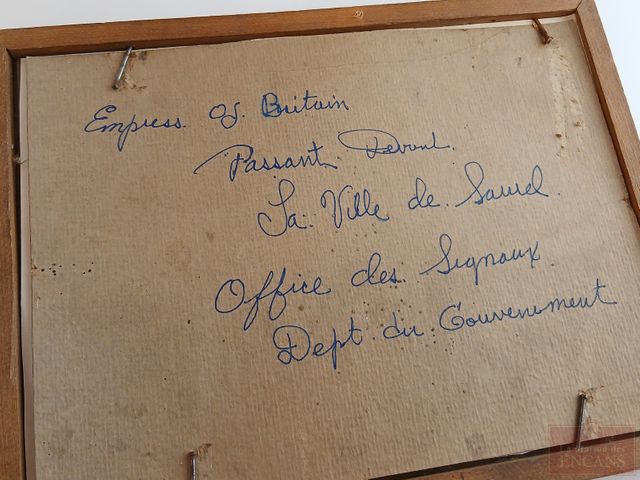 Empress. Of. Britain
Passant. Devant.
La. Ville de. Saurel.
Office des. Signaux.
Dept. du. Gouvenement
La Maison des
ENCANS